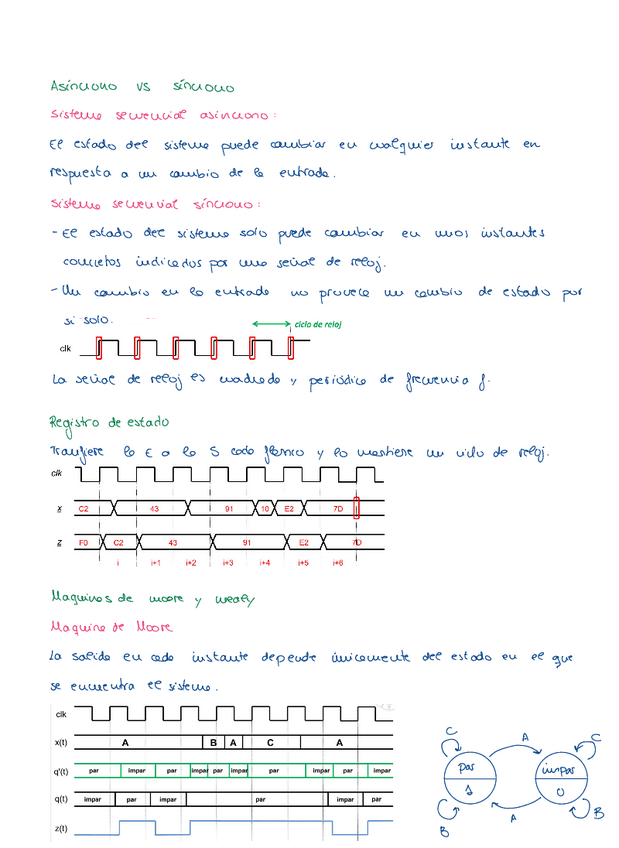 Asíncrono vs síncrono
Sistema secuencial asíncrono:
El estado del sistema puede cambiar en cualquier instante en
respuesta a un cambio de la entrada.
Sistema secuencial síncrono:
- El estado del sistema solo puede cambiar en unos instantes
concretos indicados por una señal de reloj.
- Un cambio en la entrada no provoca un cambio de estado por
si solo.
ciclo de reloj
clk
La señal de reloj es cuadrada y periódica de frecuencia f.
Registro de estado
Tranfiere la E a la S cada flanco y lo mantiene un ciclo de reloj.
clk
x C2 43 91 10 E2 7D
z F0 C2 43 91 E2 7D
i i+1 i+2 i+3 i+4 i+5 i+6
Maquinas de moore y mealy
Maquina de Moore
La salida en cada instante depende únicamente del estado en el que
se encuentra el sistema.
clk
x(t) A B A C A
q'(t) par impar par impar par impar par impar par impar
q(t) impar par impar par impar par
z(t)
C A C
par impar
1 0
B A B